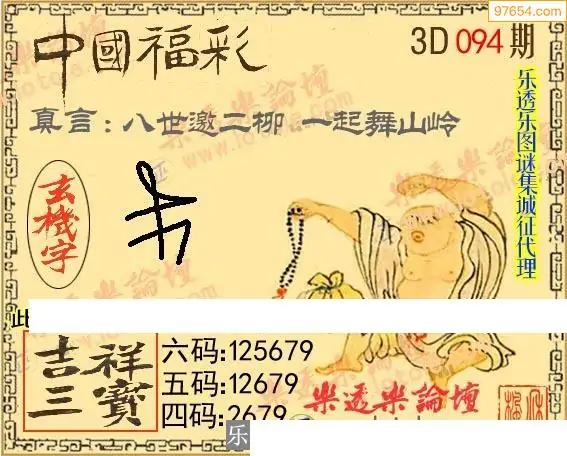 97654.com
中國福彩
3D 094 期
真言：八世邀二柳 一起舞山岭
乐透乐图谜集城征代理
玄機字
此
吉祥三寶
六码:125679
五码:12679
四码:2679
樂透樂論壇
乐